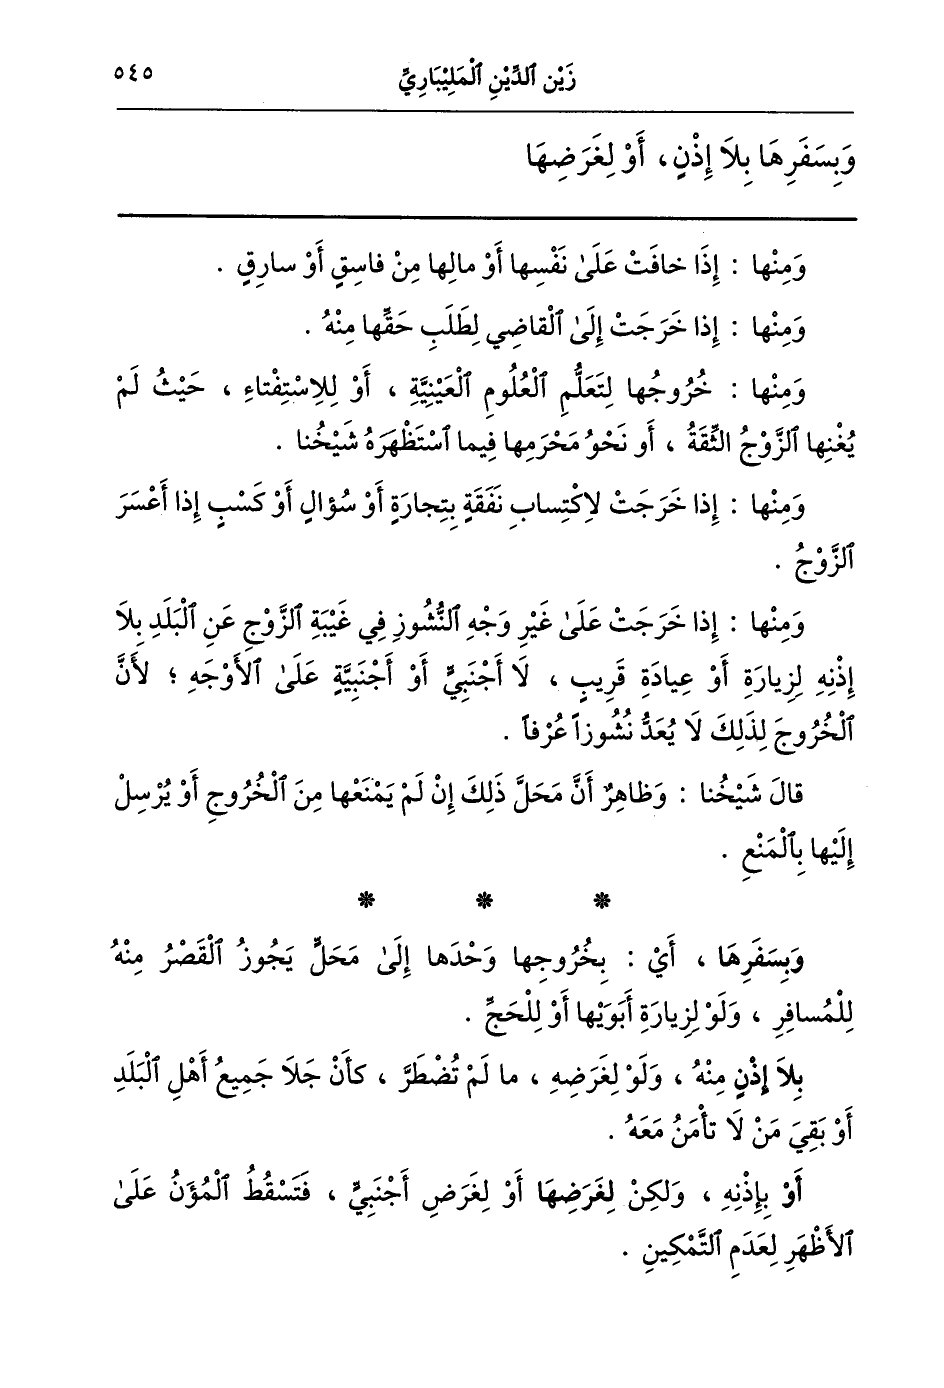 زَيْن ٱلدِّيْنِ ٱلْمَلِيْبَارِيِّ ٥٤٥
وَبِسَفَرِهَا بِلاَ إِذْنٍ، أَوْ لِغَرَضِهَا
وَمِنْها : إِذَا خافَتْ عَلَىٰ نَفْسِها أَوْ مالِها مِنْ فاسِقٍ أَوْ سارِقٍ .
وَمِنْها : إِذا خَرَجَتْ إِلَىٰ ٱلْقاضِي لِطَلَبِ حَقِّها مِنْهُ .
وَمِنْها : خُرُوجُها لِتَعَلُّمِ ٱلْعُلُومِ ٱلْعَيْنِيَّةِ ، أَوْ لِلِاسْتِفْتاءِ ، حَيْثُ لَمْ
يُغْنِها ٱلزَّوْجُ الثِّقَةُ ، أَو نَحْوُ مَحْرَمِها فِيما ٱسْتَظْهَرَهُ شَيْخُنا .
وَمِنْها : إِذا خَرَجَتْ لاِكْتِسابِ نَفَقَةٍ بِتِجارَةٍ أَوْ سُؤالٍ أَوْ كَسْبٍ إِذا أَعْسَرَ
ٱلزَّوْجُ .
وَمِنْها : إِذا خَرَجَتْ عَلَىٰ غَيْرِ وَجْهِ ٱلنُّشُوزِ فِي غَيْبَةِ ٱلزَّوْجِ عَنِ ٱلْبَلَدِ بِلاَ
إِذْنِهِ لِزِيارَةِ أَوْ عِيادَةِ قَرِيبٍ ، لَا أَجْنَبِيٍّ أَوْ أَجْنَبِيَّةٍ عَلَىٰ ٱلأَوْجَهِ ؛ لأَنَّ
ٱلْخُرُوجَ لِذَلِكَ لَا يُعَدُّ نُشُوزاً عُرْفاً .
قالَ شَيْخُنا : وَظاهِرٌ أَنَّ مَحَلَّ ذَلِكَ إِنْ لَمْ يَمْنَعْها مِنَ ٱلْخُرُوجِ أَوْ يُرْسِلْ
إِلَيْها بِٱلْمَنْعِ .
* * *
وَبِسَفَرِهَا ، أَيْ : بِخُرُوجِها وَحْدَها إِلَىٰ مَحَلٍّ يَجُوزُ ٱلْقَصْرُ مِنْهُ
لِلْمُسافِرِ ، وَلَوْ لِزِيارَةِ أَبَوَيْها أَوْ لِلْحَجِّ .
بِلاَ إِذْنٍ مِنْهُ ، وَلَوْ لِغَرَضِهِ ، ما لَمْ تُضْطَرَّ ، كأَنْ جَلَا جَمِيعُ أَهْلِ ٱلْبَلَدِ
أَوْ بَقِيَ مَنْ لَا تأْمَنُ مَعَهُ .
أَوْ بِإِذْنِهِ ، وَلكِنْ لِغَرَضِهَا أَوْ لِغَرَضِ أَجْنَبِيٍّ ، فَتَسْقُطُ ٱلْمُؤَنُ عَلَىٰ
ٱلأَظْهَرِ لِعَدَمِ ٱلتَّمْكِينِ .